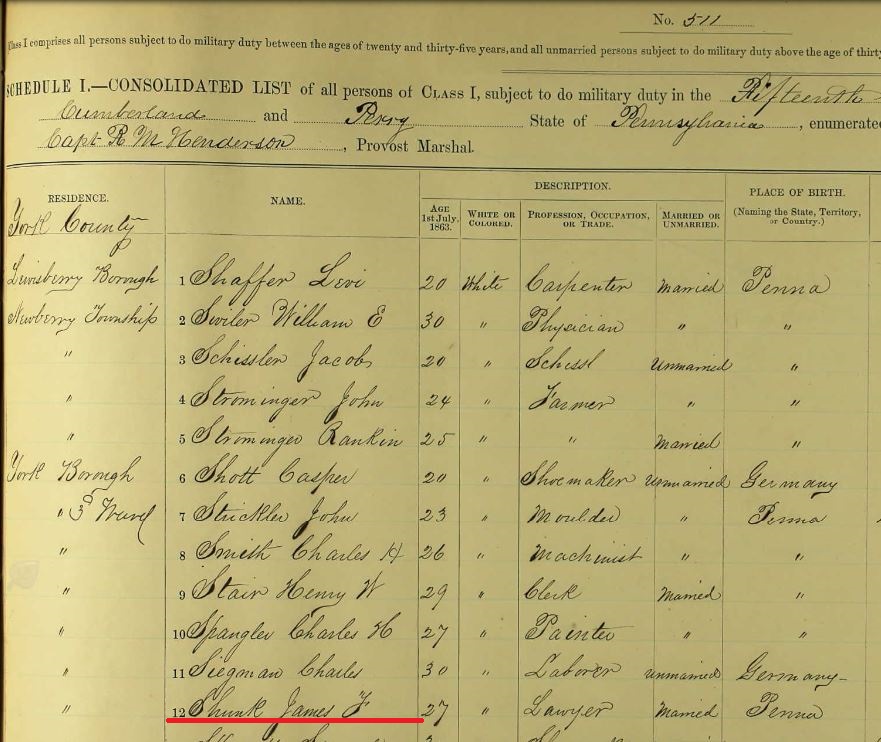 No. 511
Class I comprises all persons subject to do military duty between the ages of twenty and thirty-five years, and all unmarried persons subject to do military duty above the age of thirty
SCHEDULE I.—CONSOLIDATED LIST of all persons of CLASS I, subject to do military duty in the Fifteenth
Cumberland and Perry State of Pennsylvania, enumerated
Capt R M Henderson, Provost Marshal.
RESIDENCE. NAME. DESCRIPTION. PLACE OF BIRTH.
AGE 1st July, 1863. WHITE OR COLORED. PROFESSION, OCCUPATION, OR TRADE. MARRIED OR UNMARRIED. (Naming the State, Territory, or Country.)
York County
Lewisberry Borough 1 Shaffer Levi 20 White Carpenter Married Penna
Newberry Township 2 Swiler William E 30 " Physician " "
" 3 Schissler Jacob 20 " Unmarried "
" 4 Strominger John 24 " Farmer " "
" 5 Strominger Rankin 25 " " Married "
York Borough 6 Shott Casper 20 " Shoemaker Unmarried Germany
" 3 Ward 7 Strickler John 23 " Moulder " Penna
" 8 Smith Charles H 26 " Machinist " "
" 9 Stair Henry W 29 " Clerk Married "
" 10 Spangler Charles H 27 " Painter " "
" 11 Siegman Charles 30 " Laborer Unmarried Germany
" 12 Shunk James F 27 " Lawyer Married Penna